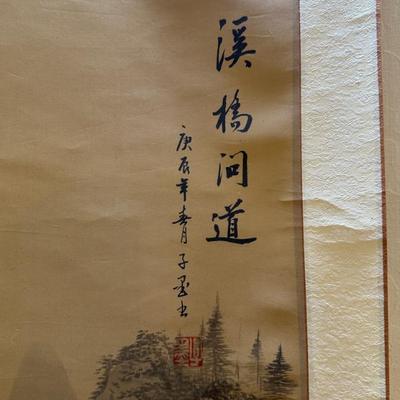 溪橋问道
庚辰年春月子墨书